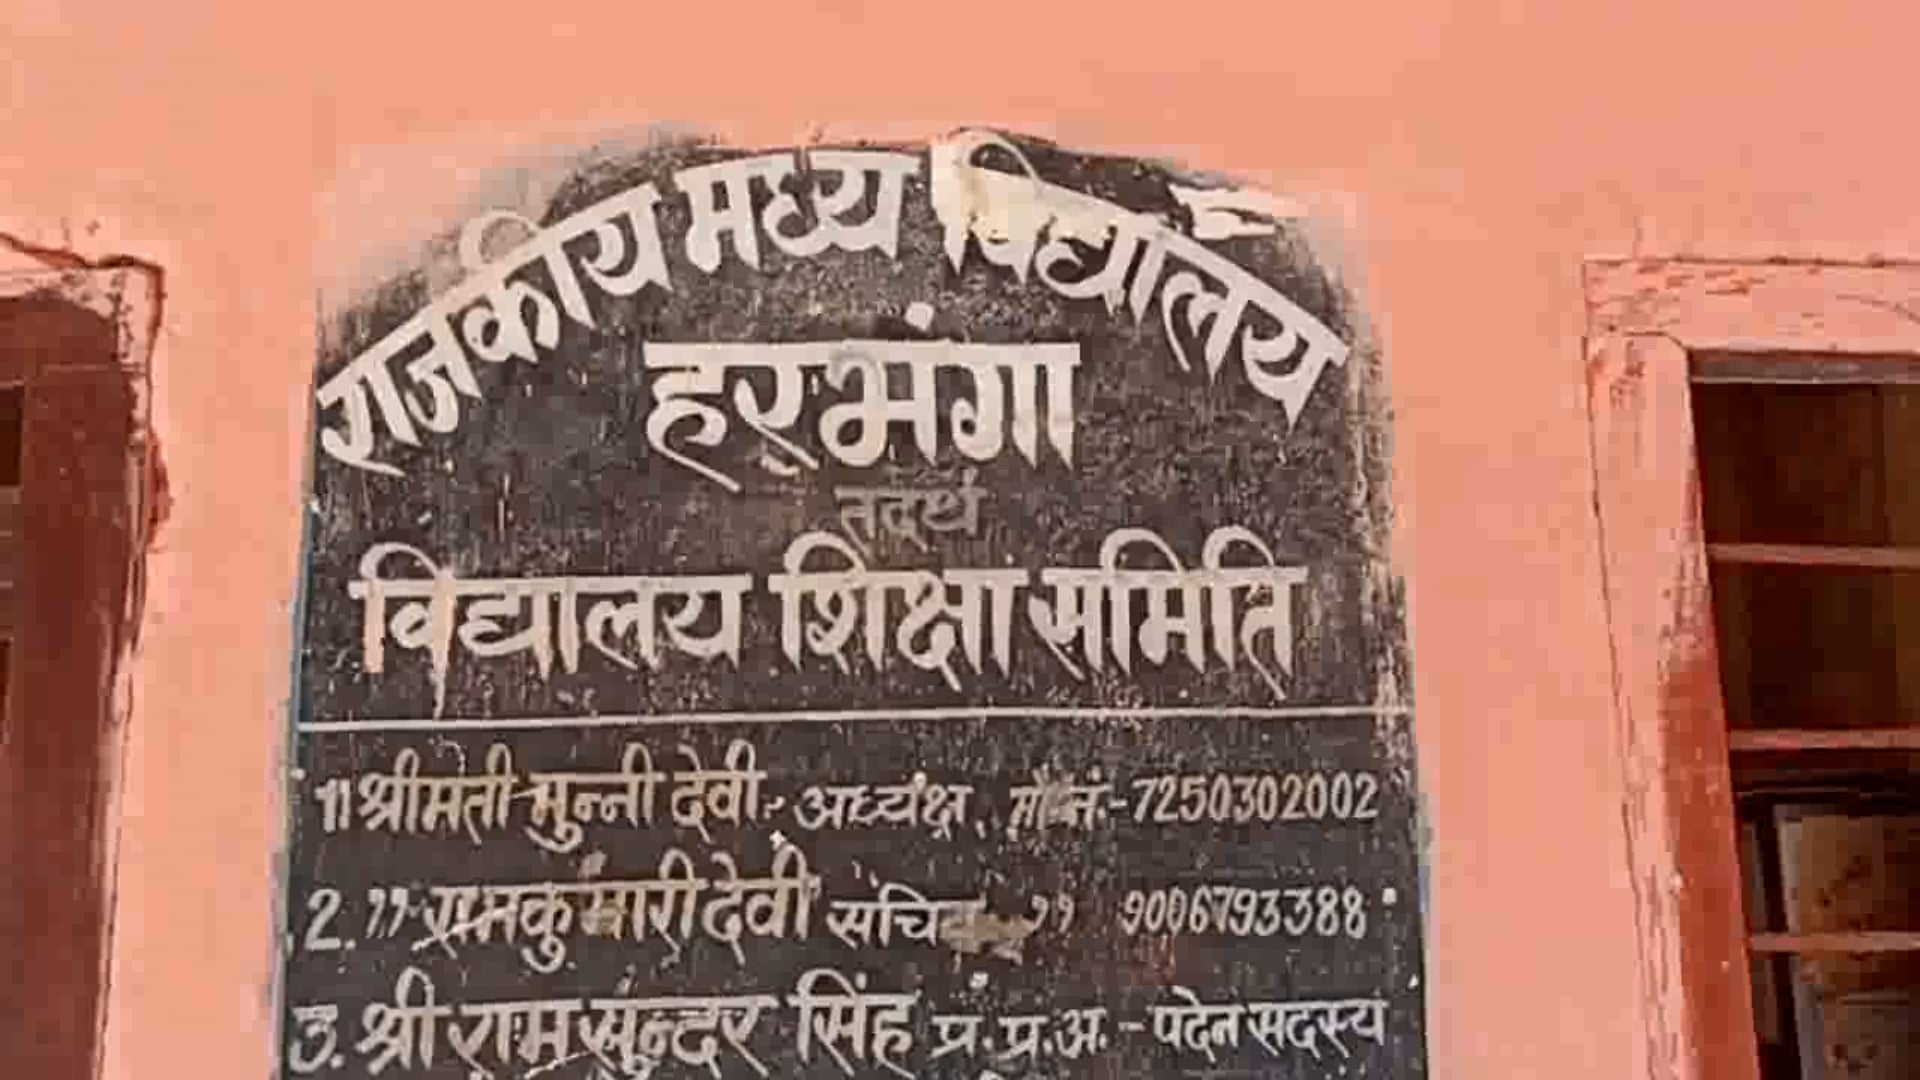 राजकीय मध्य विद्यालय
हरभंगा
तदर्थ
विद्यालय शिक्षा समिति
1। श्रीमती मुन्नी देवी, अध्यक्ष, मो.नं.- 7250302002
2. ,, रामकुमारी देवी ,, 9006793388
3. श्री राम सुन्दर सिंह प्र.प्र.अ. - पदेन सदस्य